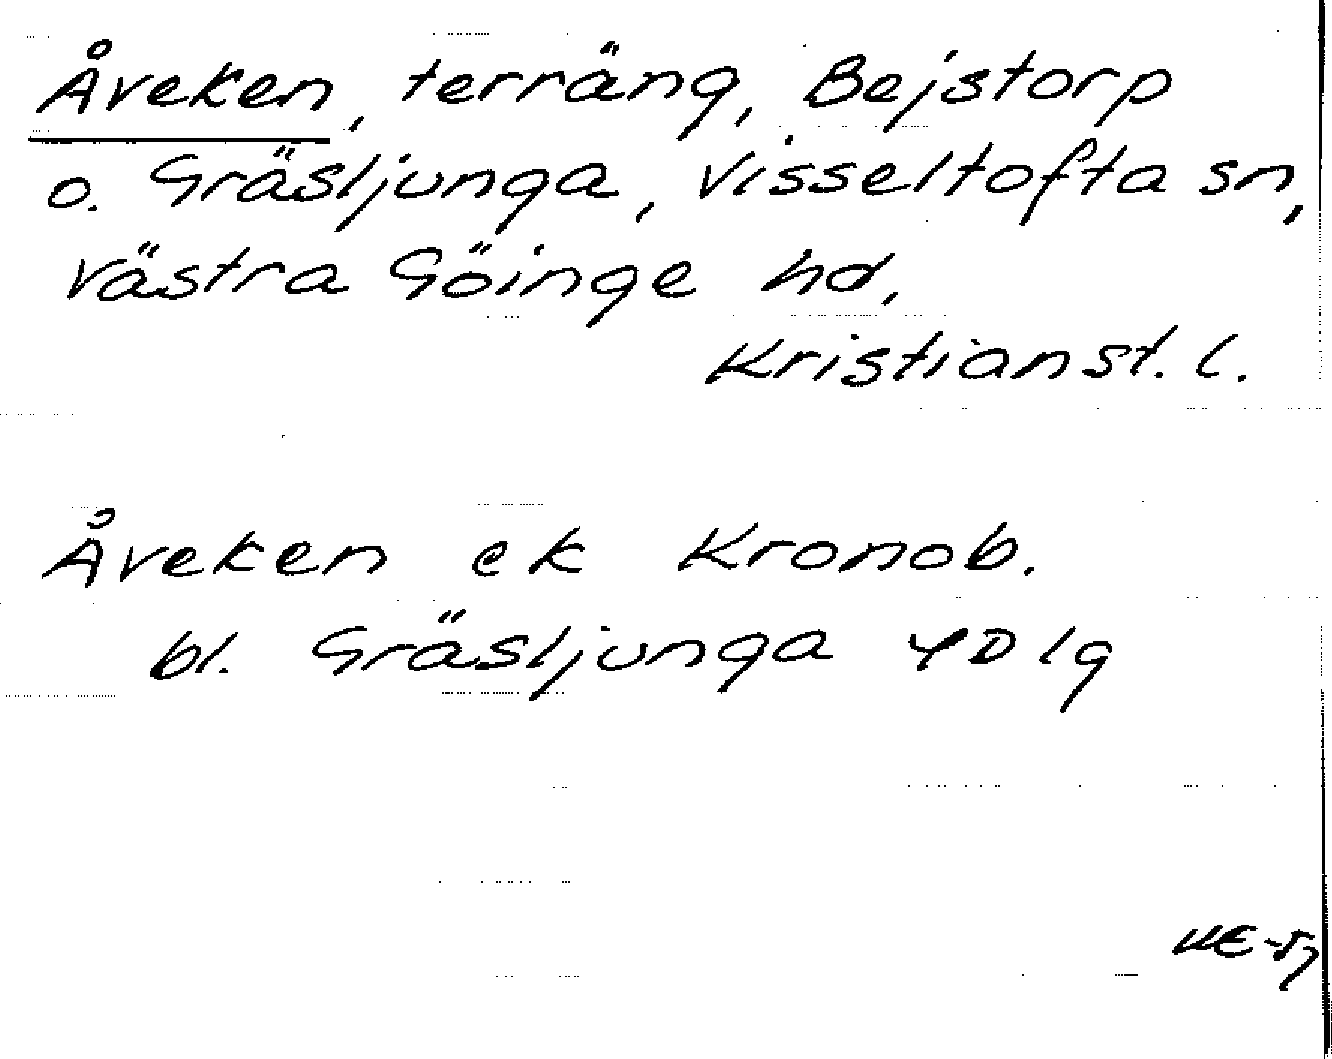 Åveken, terräng, Bejstorp
o. Gräsljunga, Visseltofta sn,
Västra Göinge hd,
Kristianst. l.
Åveken ek Kronob.
bl. Gräsljunga 4D1g